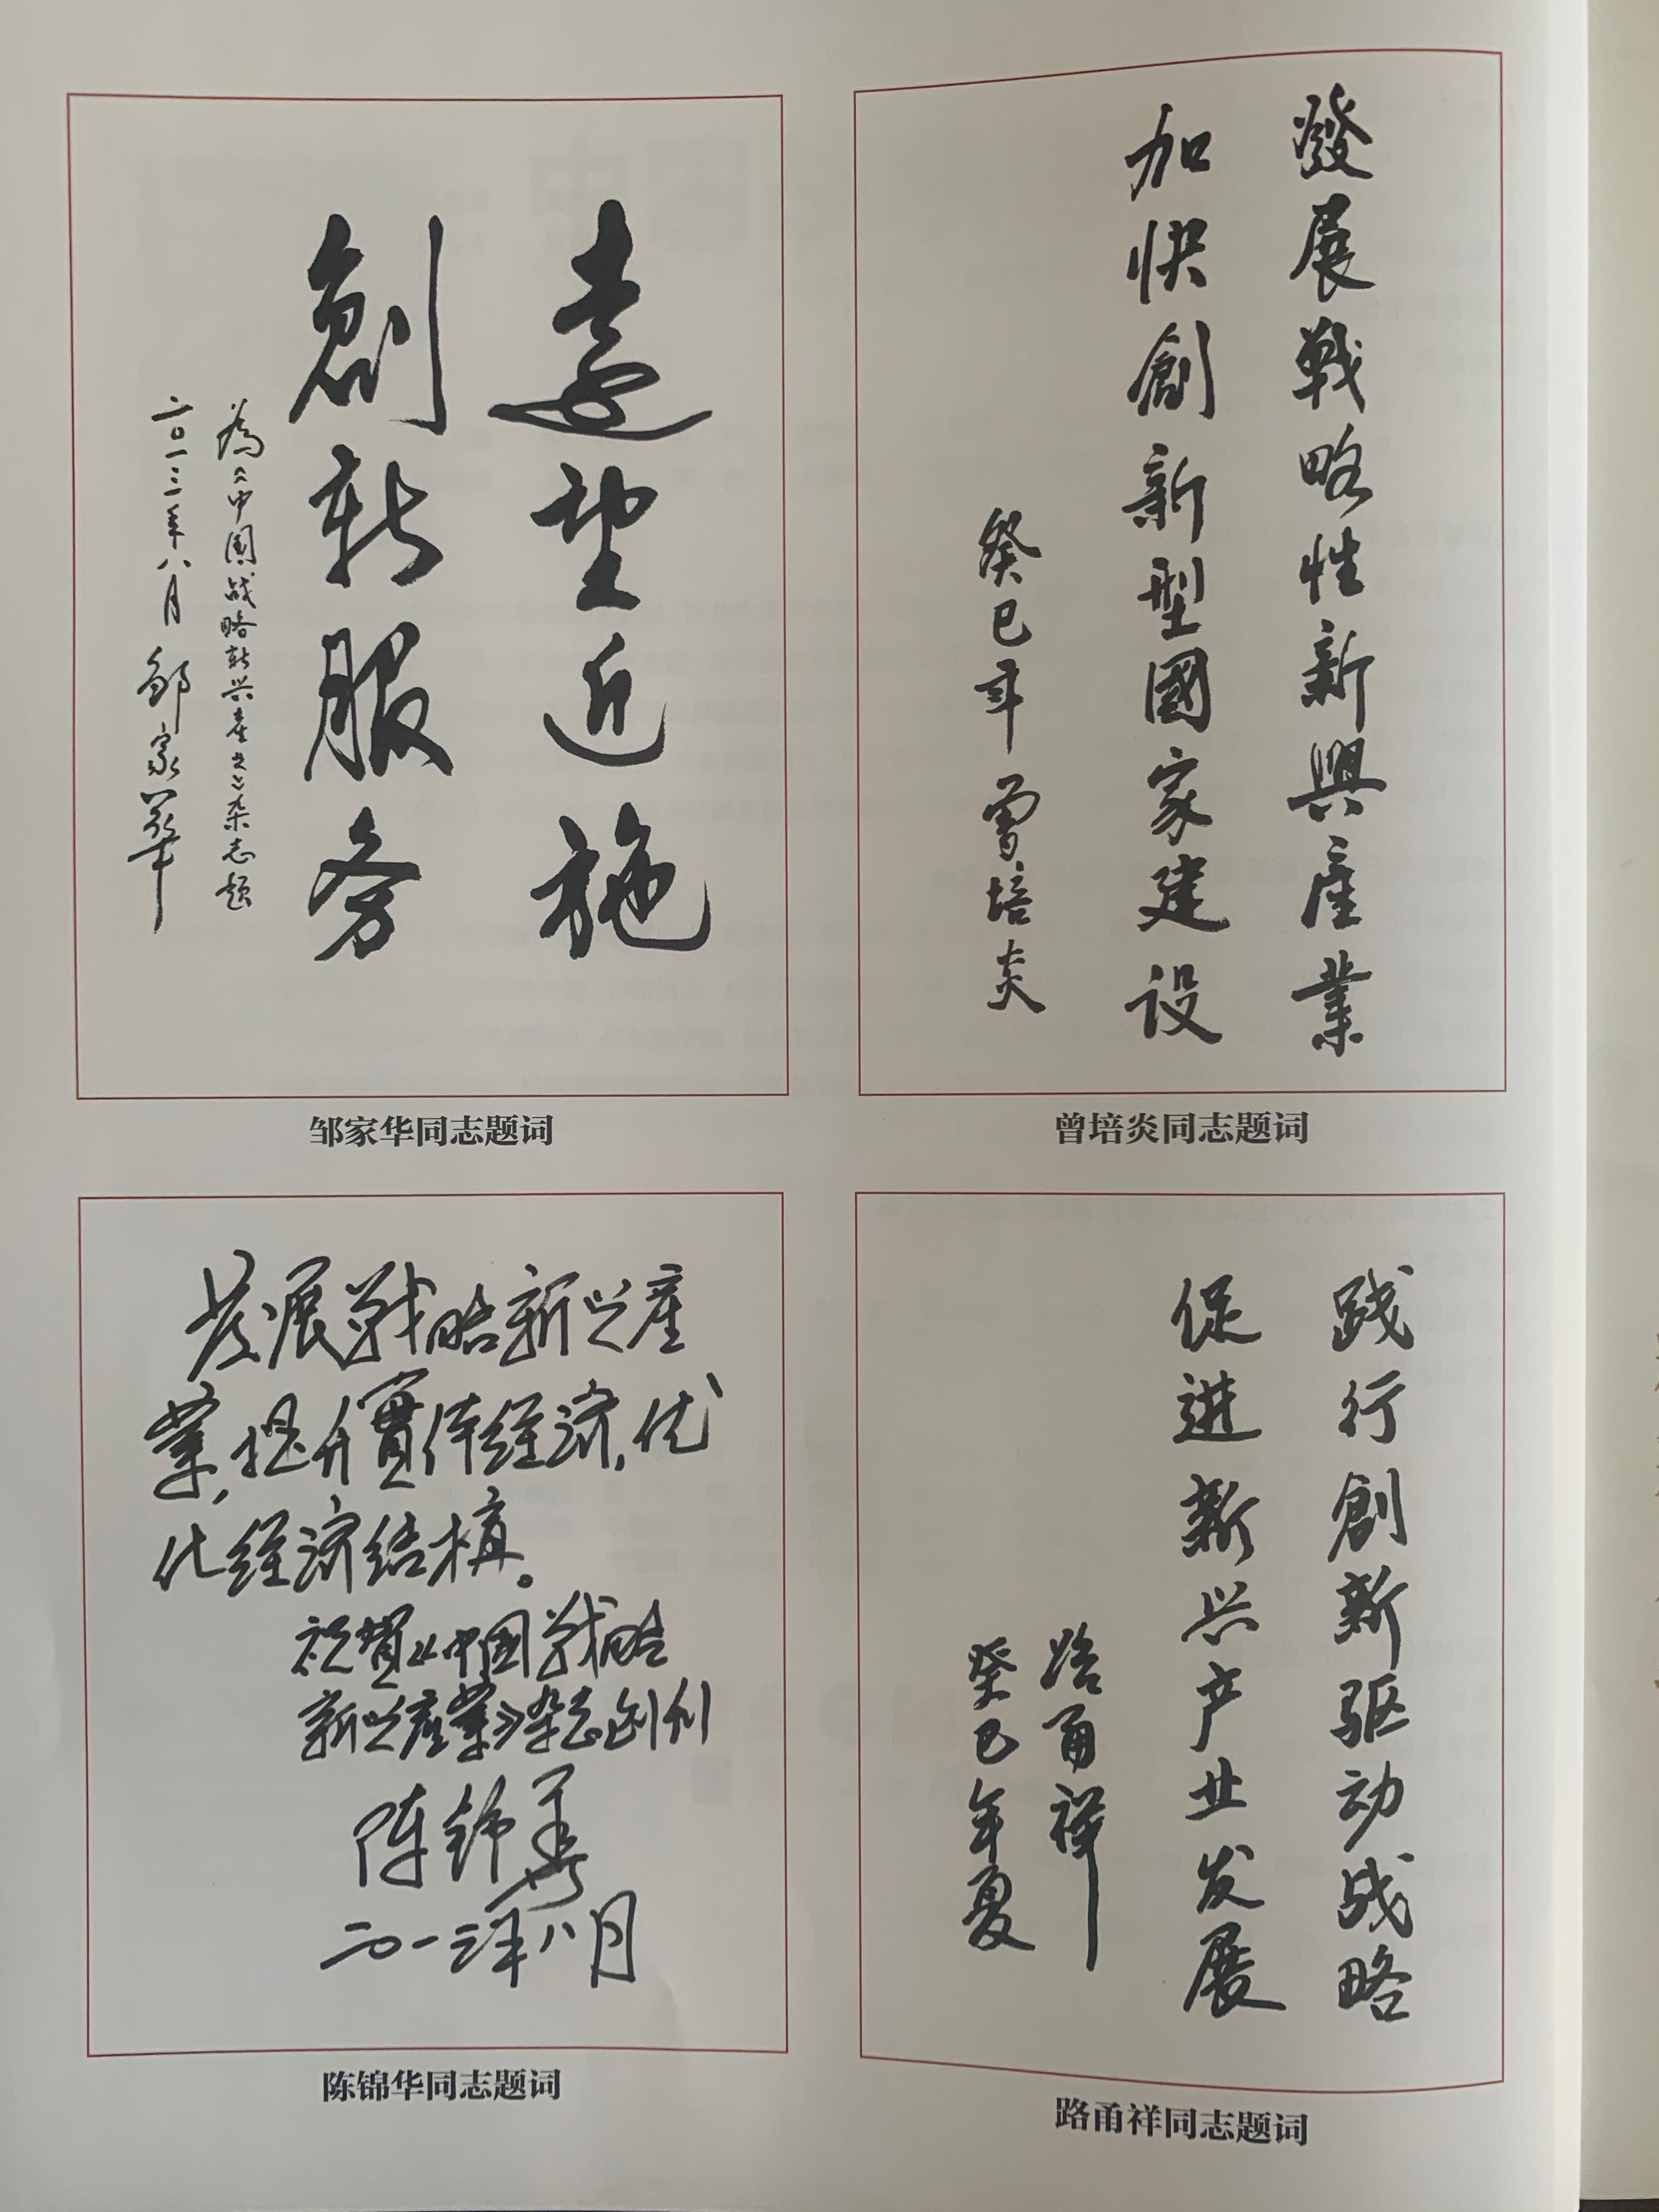 遠望近施
創新服务
為《中国战略新兴產业》杂志题
二〇一三年八月 邹家華
邹家华同志题词
發展戰略性新興產業
加快創新型國家建设
癸巳年 曾培炎
曾培炎同志题词
发展戰略新兴產
業,提升實体经济,优
化经济结構。
祝賀《中国戰略
新兴產業》杂志创刊
陈锦華
二〇一三年八月
陈锦华同志题词
践行創新驱动战略
促进新兴产业发展
路甬祥
癸巳年夏
路甬祥同志题词